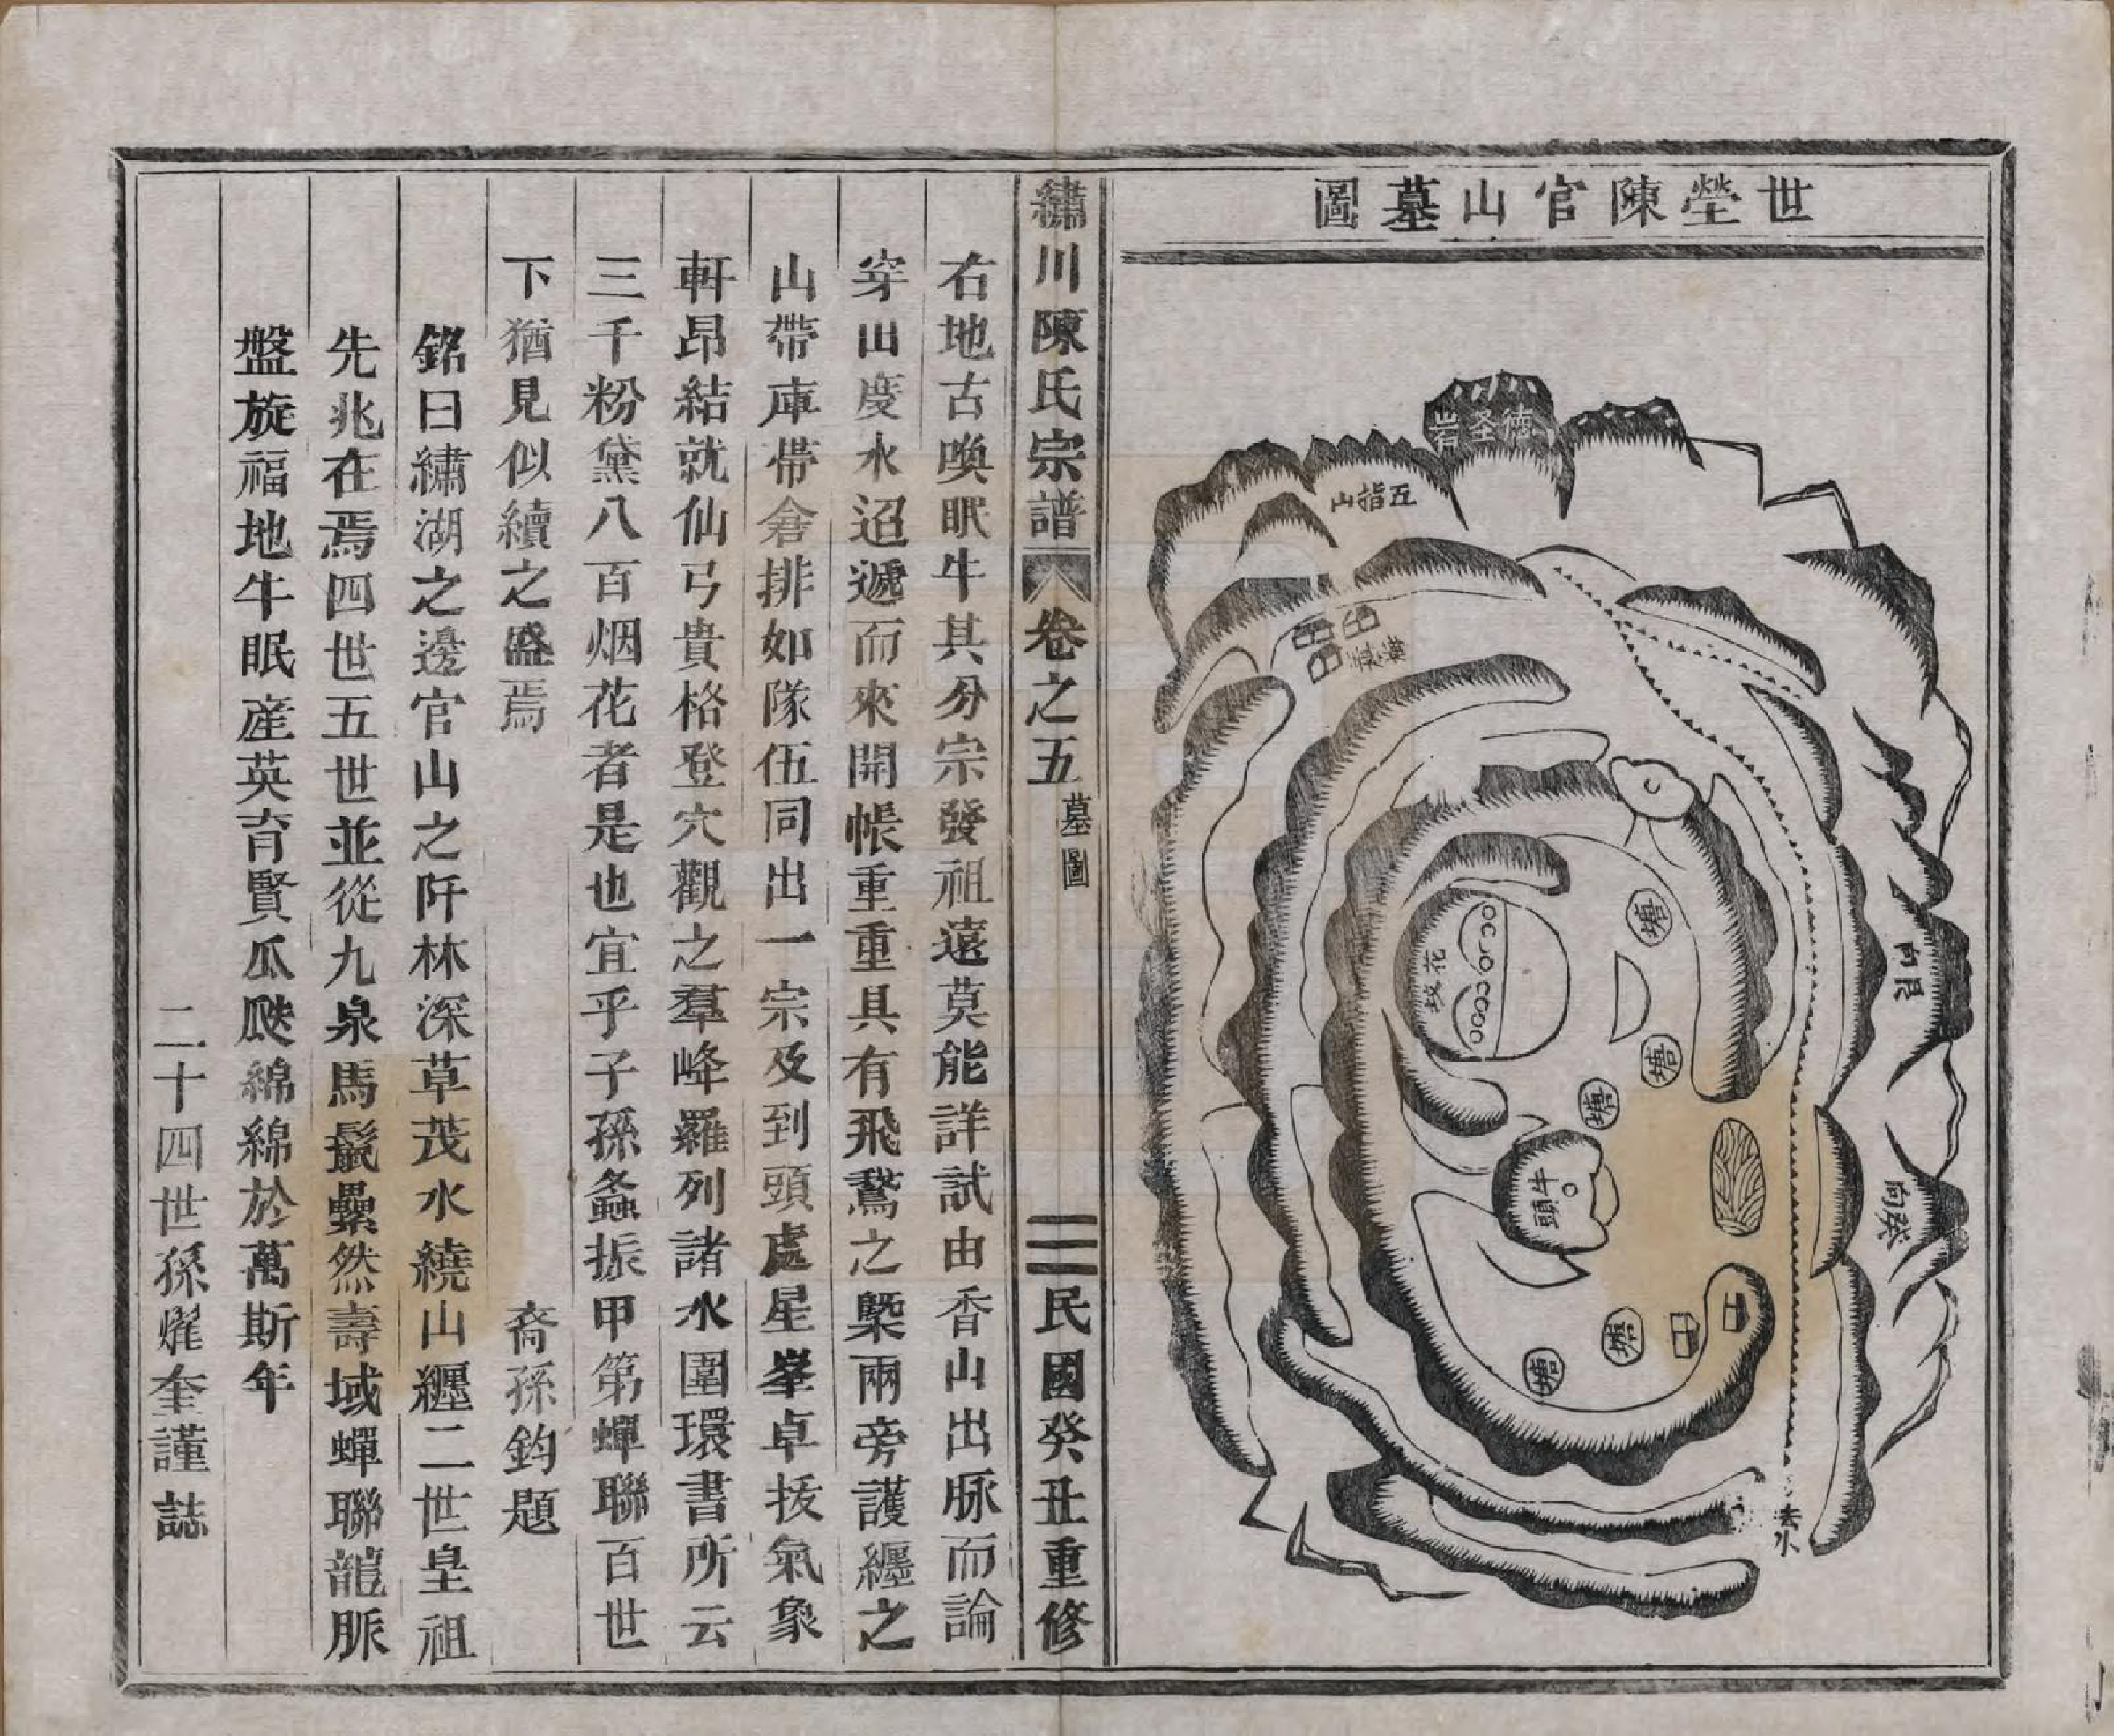 世塋陳官山墓圖
德圣岩
五指山
塘
花坟
塘
塘
牛頭
塘
塘
艮向
癸向
去水
繡川陳氏宗譜
卷之五
墓圖
三
民國癸丑重修
右地古喚眠牛其分宗發祖遠莫能詳試由香山出脉而論
穿田度水迢遞而來開帳重重具有飛鵞之槩兩旁護纒之
山帶庫帶倉排如隊伍同出一宗及到頭處星峯卓拔氣象
軒昂結就仙弓貴格登穴觀之羣峰羅列諸水圍環書所云
三千粉黛八百烟花者是也宜乎子孫螽振甲第蟬聯百世
下猶見似續之盛焉
裔孫鈞題
銘曰繡湖之邊官山之阡林深草茂水繞山纒二世皇祖
先兆在焉四世五世並從九泉馬鬛纍然壽域蟬聯龍脈
盤旋福地牛眠産英育賢瓜瓞綿綿於萬斯年
二十四世孫燿奎謹誌